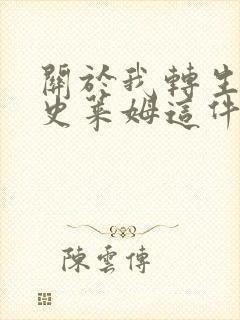 關於我轉生
史萊姆這件
陳雲傳